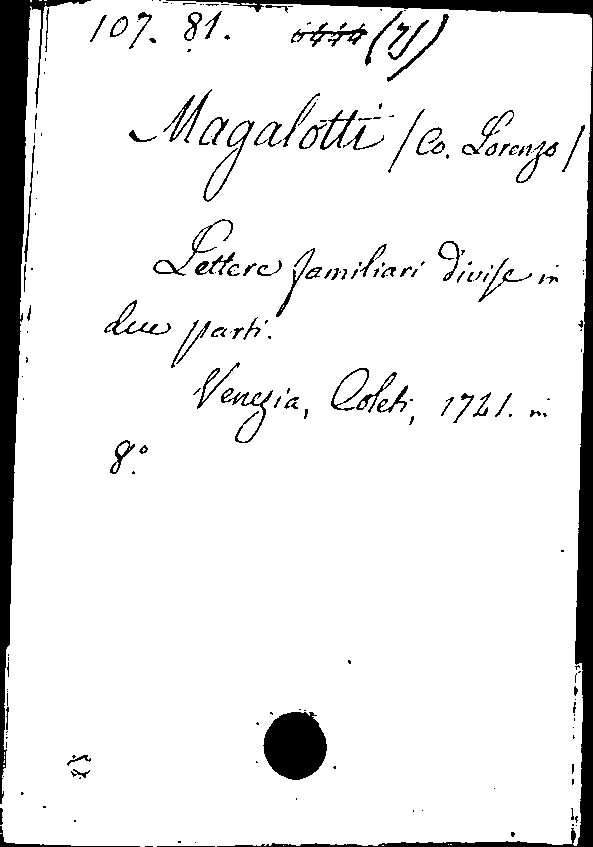 107. 81. (71)
Magalotti /Co. Lorenzo/
Lettere familiari divise in
due parti.
Venezia, Coleti, 1741. in
8.°